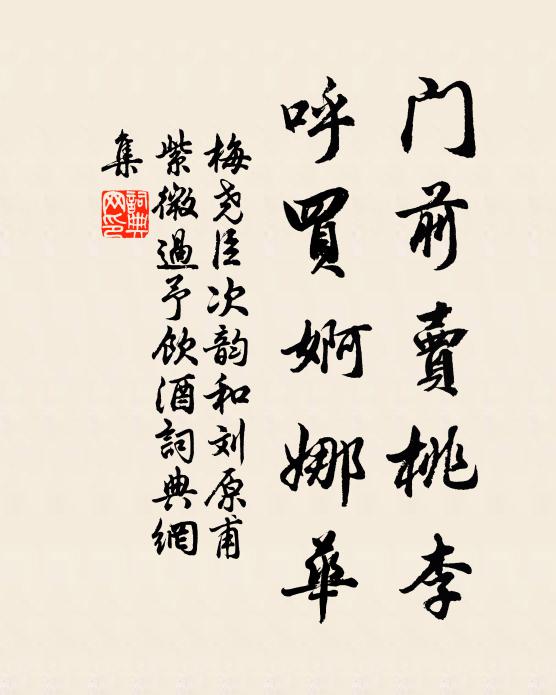 门前賣桃李
呼買婀娜華
梅尧臣次韵和刘原甫
紫微過予飲酒詞典網
集
詞典
网印